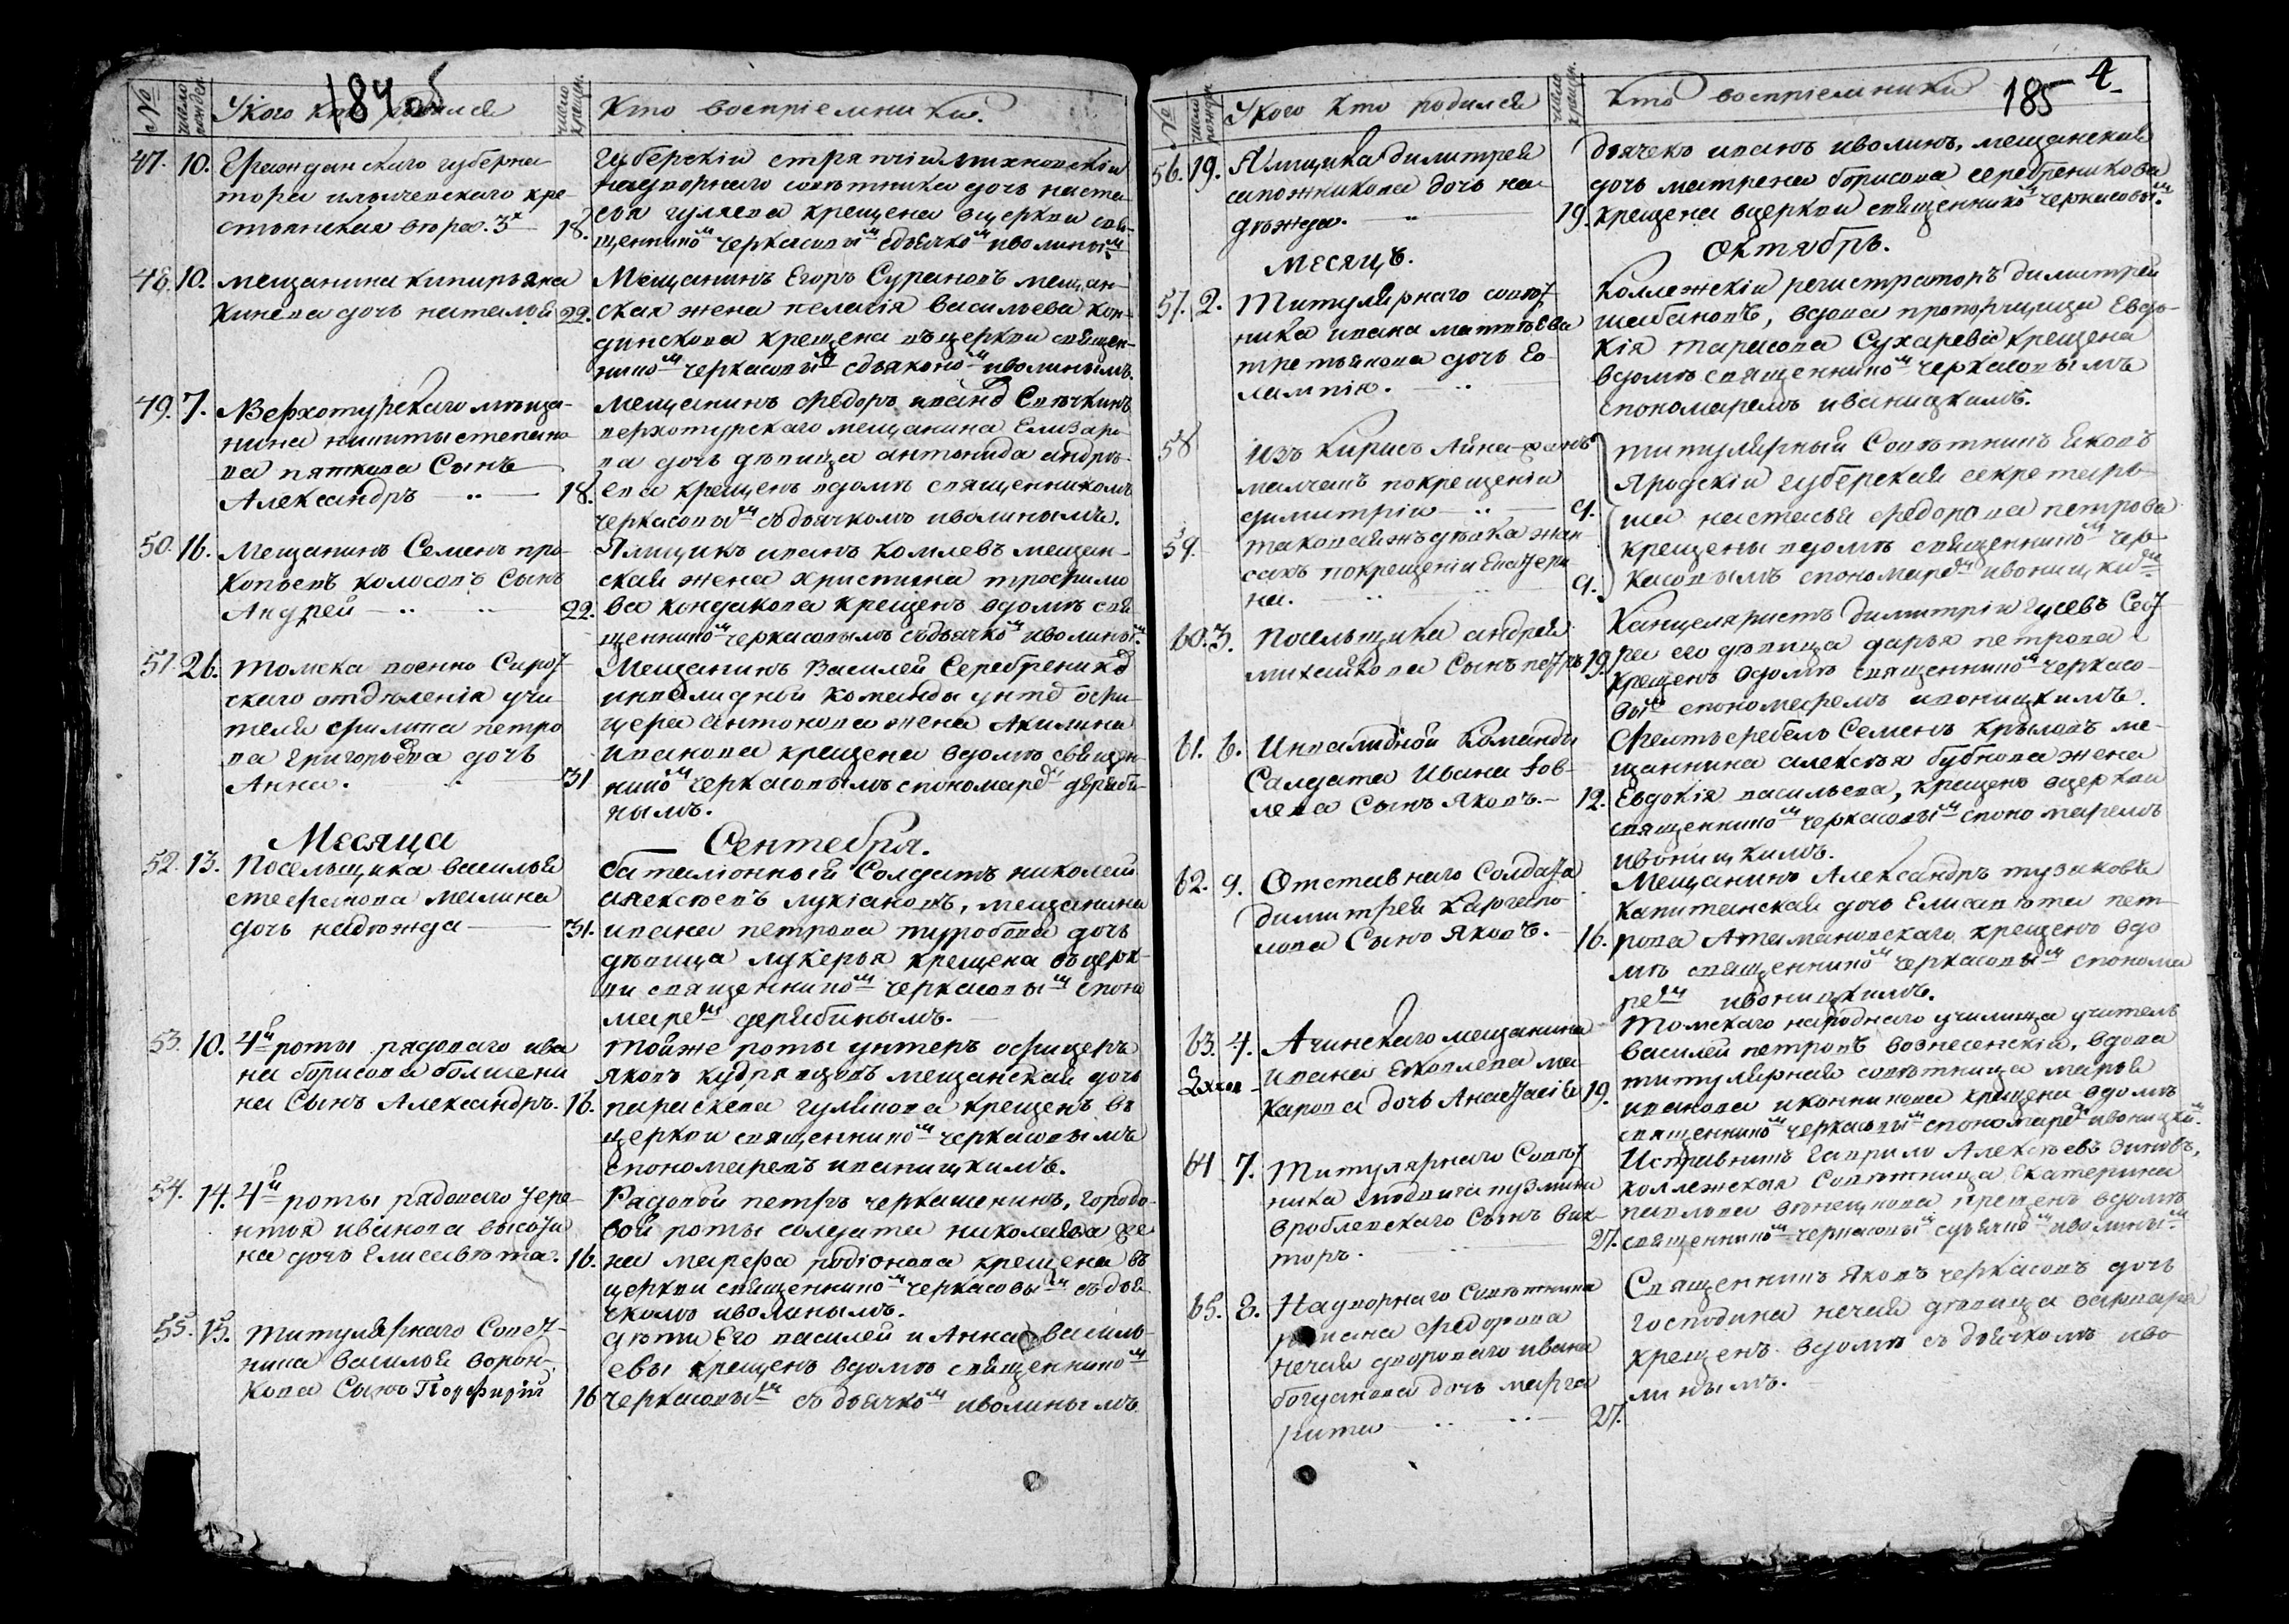 184 об
№
число рожден.
Укого кто родился
число крещен.
Кто воспріемники.
47. 10. Гражданскаго губерна
тора илличевскаго кре
18.
Губерскіи стряпчіи
надворнаго совѣтника дочь наста
сья гуляева крещена вцеркви свя
щенникомъ черкасовымъ сдьячкомъ иволинымъ
48. 10. Мещанина киприяна
кинева дочь наталья 22.
Мещанинъ Егоръ Сурановъ мещан-
ская жена пелагія васильева кон-
динскова крещена въ церкви священ-
никомъ черкасовымъ сдьякономъ иволинымъ.
49. 7. Верхотурскаго меща-
нина никиты степано
ва пяткова Сынъ
Александръ 18.
Мещанинъ федоръ ивановъ Свѣчкинъ
верхотурскаго мещанина Елизаро
ва дочь дѣвица антонида андрѣ-
ева крещенъ вдомѣ священникомъ
черкасовымъ съдьячкомъ иволинымъ.
50. 16. Мещанинъ Семенъ про-
копьевъ колосовъ Сынъ
Андрей 22.
Ямщикъ иванъ Комлевъ мещан-
ская жена христина трофимо
ва кондакова крещенъ вдомѣ свя
щенникомъ черкасовымъ съдьячкомъ иволинымъ.
51. 26. Томска военно Сирот
скаго отдѣленія учи-
теля филипа петро
ва григорьева дочь
Анна. 31
Мещанинъ Василей Серебрениковъ
инвалидной команды унтъ офи-
цера антонова жена Акилина
иванова крещена вдомѣ священ
никомъ черкасовымъ спономаремъ деряби-
нымъ.
Месяца Сентебря.
52. 13. Посельщика василья
стефанова малина
дочь надежда 31.
баталіонный Солдатъ николай
алексеевъ лукіановъ, мещанина
ивана петрова дочь
дѣвица лукерья крещена въ церк-
ви священникомъ черкасовымъ споно
маремъ дерябинымъ.
53. 10. 4й роты рядоваго ива
на борисова болшени
на Сынъ Александръ. 16.
тойже роты унтеръ офицеръ
яковъ кудрявцовъ мещанская дочь
параскева гулякова крещенъ въ
церкви священникомъ черкасовымъ
спономаремъ иваницкимъ.
54. 14. 4й роты рядоваго тере
нтья иванова высоти
на дочь Елисавѣта. 16.
Радовой петръ черкашенинъ, городо-
вой роты солдата николаева же
на марфа родіонова крещена въ
церкви священникомъ черкасовымъ съдья
чкомъ иволинымъ.
55. 15. Титулярнаго Совет-
ника василья ворон-
кова Сынъ Порфирій 16
дѣти Его василей и Анна василь-
евы крещенъ вдомѣ священникомъ
черкасовымъ съ дьячкомъ иволинымъ
185 4
№
число рожден.
Укого кто родился
число крещен.
кто воспріемники
56. 19. Ямщика димитрея
сапожникова дочь на
дежда. 19.
дьячекъ иванъ иволинъ, мещанская
дочь матрена борисова серебреникова
крещена вцеркви священникомъ черкасовымъ.
Месяцъ. Октябрь.
57. 2. Титулярнаго совѣт
ника ивана матвѣева
третьякова дочь Ео-
лампію.
Коллежскіи регистраторъ димитреи
шабановъ, вдова прапорщица Евдо-
кія тарасова Сухарева крещена
вдомѣ священникомъ черкасовымъ
спономаремъ иваницкимъ.
58
изъ киргисъ
малчикъ покрещеніи
димитріи 9.
59. таковаяжъ дѣвка жан
сакъ покрещеніи Екатери
на. 9.
титулярный Совѣтникъ яковъ
ярадскіи губерская секретарь
ша настасья федорова петрова
крещены вдомѣ священникомъ чер
касовымъ спономаремъ ивоницкимъ.
60. 3. Посельщика андрея
михайлова Сынъ петръ 19.
Канцеляристъ димитріи гусевъ Сест
ра его дѣвица дарья петрова
крещенъ вдомѣ священникомъ черкасо-
вымъ спономаремъ ивоницкимъ.
61. 6. Инвалидной Команды
Салдата Ивана
лева Сынъ Яковъ. 12.
Фелтьфебель Семенъ крыловъ ме-
щанина алексѣя бубнова жена
Евдокія васильева, крещенъ вцеркви
священникомъ черкасовымъ споно маремъ
ивоницкимъ.
62. 9. Отставнаго Солдата
димитрея Каргапо
лова Сынъ Яковъ. 16.
Мещанинъ Александръ тузиковъ
капитанская дочь Елисавѣта пет-
рова Атамановскаго крещенъ вдо
мѣ священникомъ черкасовымъ спонома
ремъ ивоницкимъ.
63. 4. Ачинскаго мещанина
ивана Яковлева ма-
карова дочь Анастасія 19.
томскаго народнаго училища учитель
василеи петровъ вознесенскіи, вдова
титулярная совѣтница марья
иванова иконникова крещена вдомѣ
священникомъ черкасовымъ спономаремъ ивоницкимъ.
64 7. Титулярнаго Совѣт
ника
вроблевскаго Сынъ вик-
торъ. 27.
Исправникъ гаврило Алексѣевъ зиновъ,
коллежская Совѣтница Екатерина
павлова крещенъ вдомѣ
священникомъ черкасовымъ сдьячкомъ иволинымъ
65. 8. Надворнаго Совѣтника
романа федорова
нечая двороваго ивана
богданова дочь марга
рита 27.
Священникъ яковъ черкасовъ дочь
господина нечая дѣвица варвара
крещенъ вдомѣ съ дьячкомъ иво
линымъ.